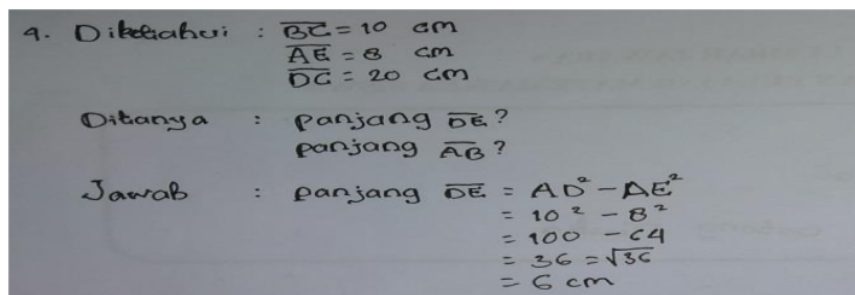 9. Diketahui : BC = 10 cm
AE = 8 cm
DC = 20 cm
Ditanya : panjang DE?
panjang AB?
Jawab : panjang DE = AD² - AE²
= 10² - 8²
= 100 - 64
= 36 = √36
= 6 cm